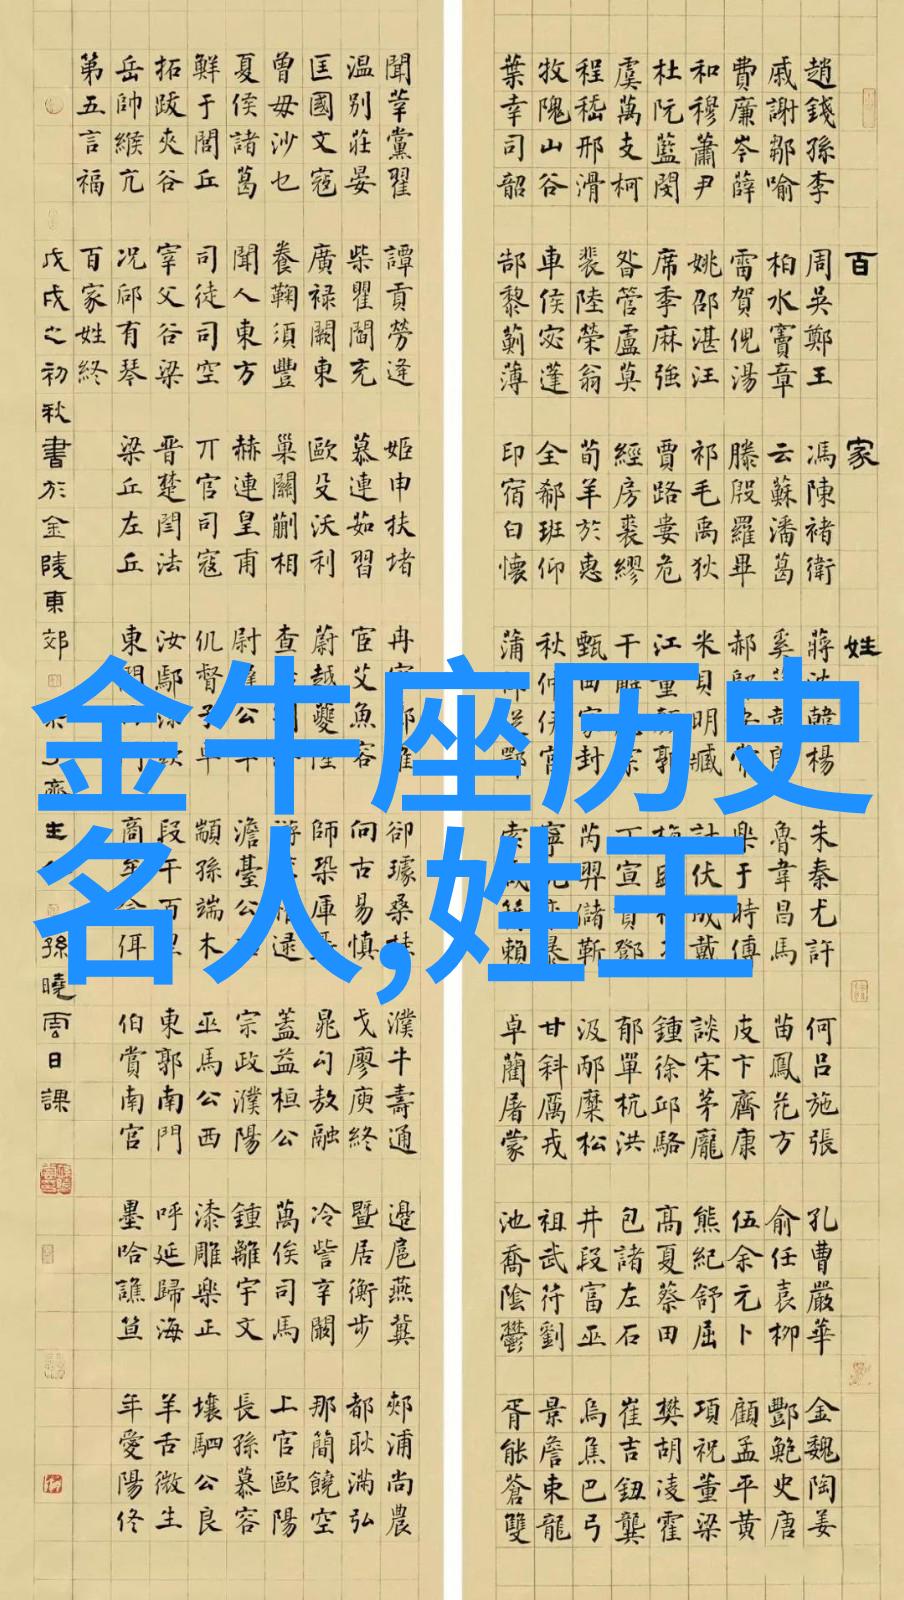 百家姓
趙錢孫李 周吳鄭王 馮陳褚衛 蔣沈韓楊 朱秦尤許 何呂施張 孔曹嚴華 金魏陶姜
戚謝鄒喻 柏水竇章 云蘇潘葛 奚 魯韋昌馬 苗鳳花方 俞任袁柳 酆鮑史唐
費廉岑薛 雷賀倪湯 滕殷羅畢 郝 常 樂于時傅 皮卞齊康 伍余元卜 顧孟平黃
和穆蕭尹 姚邵湛汪 祁毛禹狄 米貝明臧 計伏成戴 談宋茅龐 熊紀舒屈 項祝董梁
杜阮藍閔 席季麻強 賈路婁危 江童 郭 鍾徐邱駱 高夏蔡田 樊胡凌霍
虞萬支柯 昝管盧莫 經房裘繆 干解 宗 丁宣賁鄧 郁單杭洪 包諸左石 崔吉鈕龔
程嵇邢滑 裴陸榮翁 荀羊於惠 甄曲家封 芮羿儲靳 汲邴糜松 井段富巫 烏焦巴弓
牧隗山谷 車侯宓蓬 全郗班仰 秋仲伊宮 寧 暴 甘斜厲戎 祖武符劉 景詹束龍
葉幸司韶 郜黎薊薄 印宿白懷 蒲 鄂 索 賴 卓藺屠蒙 池喬陰鬱 胥能蒼雙
聞莘黨翟 譚貢勞逄 姬申扶堵 冉 雍 卻璩桑桂 濮牛壽通 邊扈燕冀 郟浦尚農
温別莊晏 柴瞿閻充 慕連茹習 宦艾魚容 向古易慎 戈廖庾終 暨居衡步 都耿滿弘
匡國文寇 廣祿闕東 歐殳沃利 蔚越夔隆 師鞏厙聶 晁勾敖融 冷訾辛闞 那簡饒空
曾毋沙乜 養鞠須豐 巢關蒯相 查 逯 蓋益桓公 萬俟司馬 上官歐陽
夏侯諸葛 聞人東方 赫連皇甫 尉遲公羊 澹臺公 宗政濮陽 鍾離宇文 長孫慕容
鮮于閭丘 司徒司空 丌官司寇 仉督子車 顓孫端木 巫馬公西 漆雕樂正 壤駟公良
拓跋夾谷 宰父谷梁 晉楚閆法 汝鄢 欽 段干百里 東郭南門 呼延歸海 羊舌微生
岳帥緱亢 況郈有琴 梁丘左丘 東門 門 商牟 佴 伯賞南宮 墨哈譙笪 年愛陽佟
第五言福 百家姓終
戊戌之初秋書於金陵東郊 孫曉雲日課
金牛座历史
名人,姓王